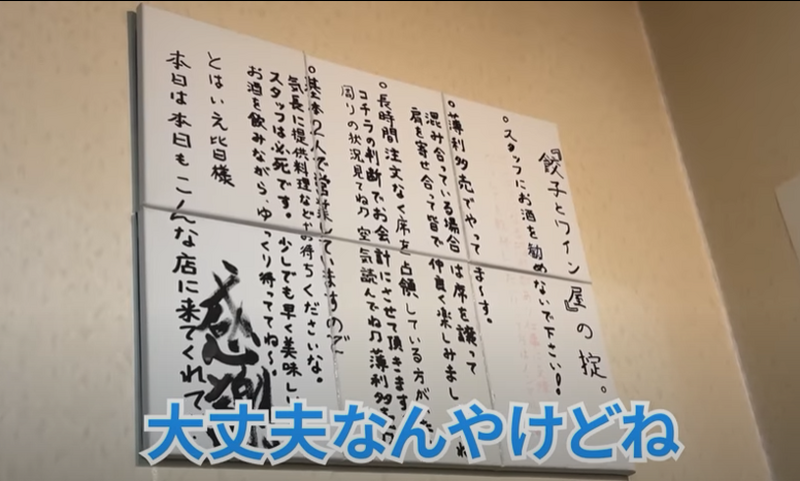 『餃子とワイン屋』の掟。
○スタッフにお酒を勧めないで下さい!
○薄利多売でやってま〜す。
混み合っている場合は席を譲って
肩を寄せ合って皆で仲良く楽しみまし
○長時間注文なく席を占領している方が
コチラの判断でお会計にさせて頂きます
周りの状況見てね♫空気読んでね♫薄利多
○基本2人で営業していますので
気長に提供料理などお待ちくださいな。
スタッフは必死です。少しでも早く美味しい
お酒を飲みながら、ゆっくり待っててね〜。
とはいえ皆様
本日は本日もこんな店に来てくれて
感謝
大丈夫なんやけどね